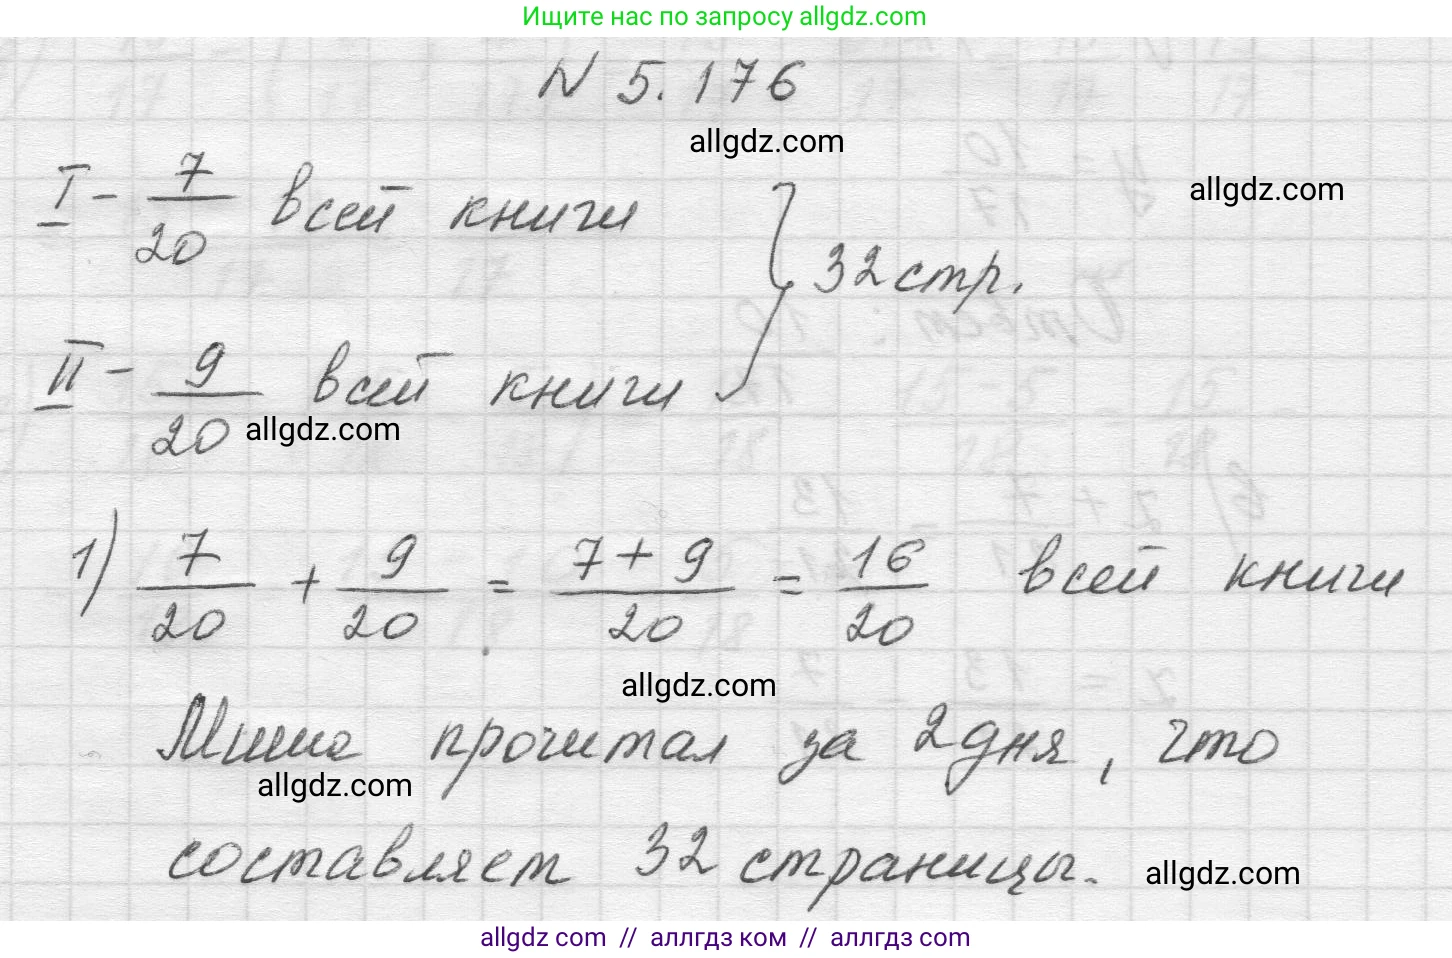 Ищите нас по запросу allgdz.com
N 5.176
allgdz.com
I - 7/20 всей книги
allgdz.com
} 32 стр.
II - 9/20 всей книги
allgdz.com
1) 7/20 + 9/20 = 7+9/20 = 16/20 всей книги
allgdz.com
Миша прочитал за 2 дня, что
allgdz.com
составляет 32 страницы.
allgdz.com
allgdz com // аллгдз ком // allgdz.com